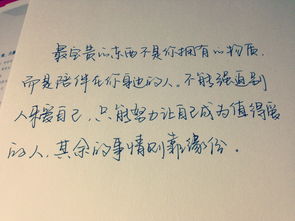 最宝贵的东西不是你拥有的物质,
而是陪伴在你身边的人。不能强迫别
人来爱自己,只能努力让自己成为值得爱
的人,其余的事情则靠缘份.